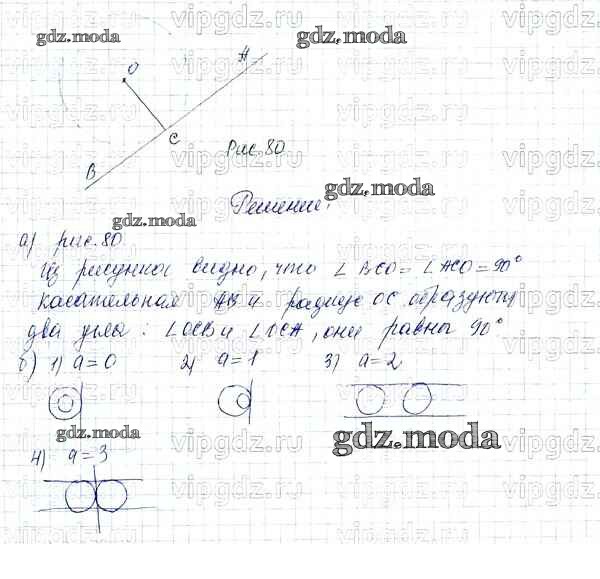 gdz.moda
gdz.moda
vipgdz.ru
O
A
C
B
Рис.80
gdz.moda
Решение:
gdz.moda
а) рис.80
Из рисунка видно, что ∠BCO = ∠ACO = 90°
касательная AB и радиус OC образуют
два угла: ∠OCB и ∠OCA, они равны 90°
б) 1) a=0 2) a=1 3) a=2
gdz.moda
gdz.moda
4) a=3